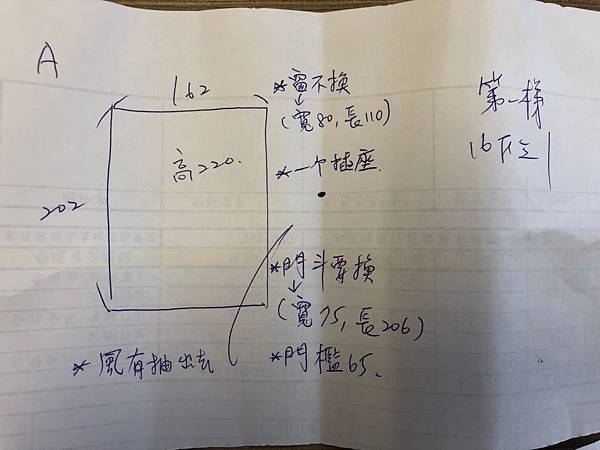 A
162
*窗不換
(寬80,長110)
第一梯
高220.
*一个插座.
202
*門斗要換
(寬75,長206)
*風有抽出去
*門檻65.